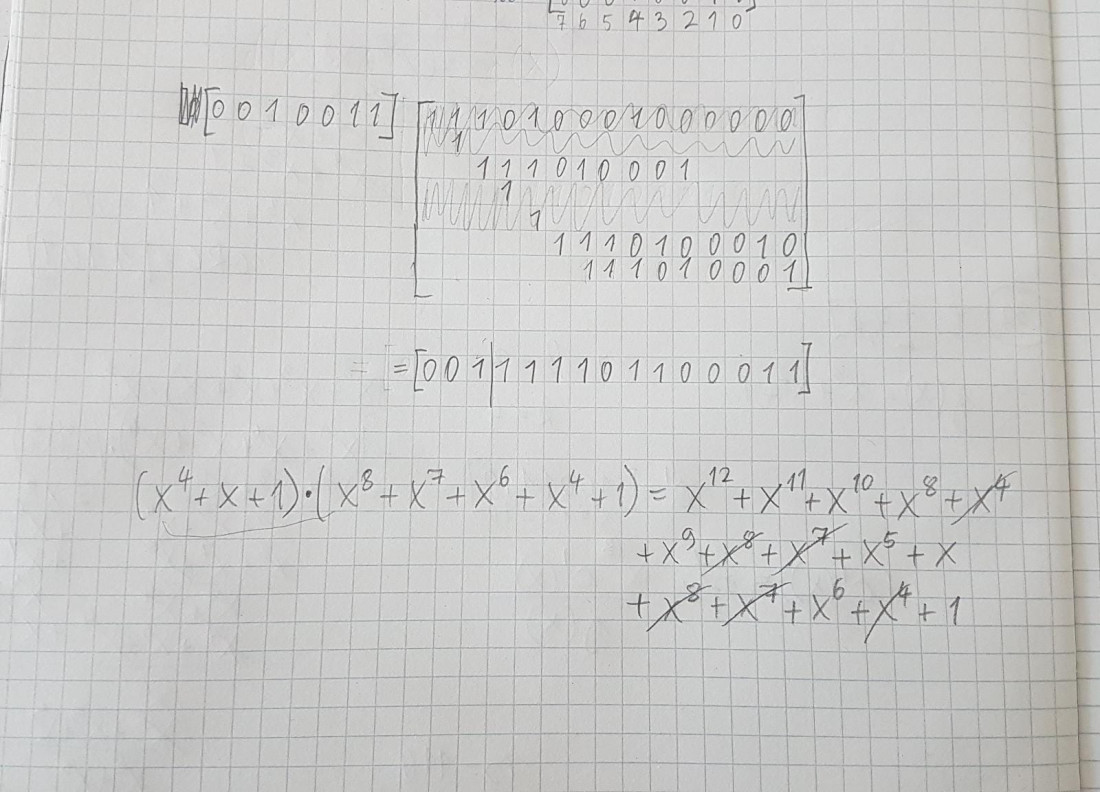 7 6 5 4 3 2 1 0
[0 0 1 0 0 1 1] [1 1 1 0 1 0 0 0 1 0 0 0 0 0 0
1
1 1 1 0 1 0 0 0 1
1
1
1 1 1 0 1 0 0 0 1 0
1 1 1 0 1 0 0 0 1]
=[0 0 1|1 1 1 1 0 1 1 0 0 0 1 1]
(x⁴+x+1)·(x⁸+x⁷+x⁶+x⁴+1)= x¹²+x¹¹+x¹⁰+x⁸+x⁴
+x⁹+x⁸+x⁷+x⁵+x
+x⁸+x⁷+x⁶+x⁴+1